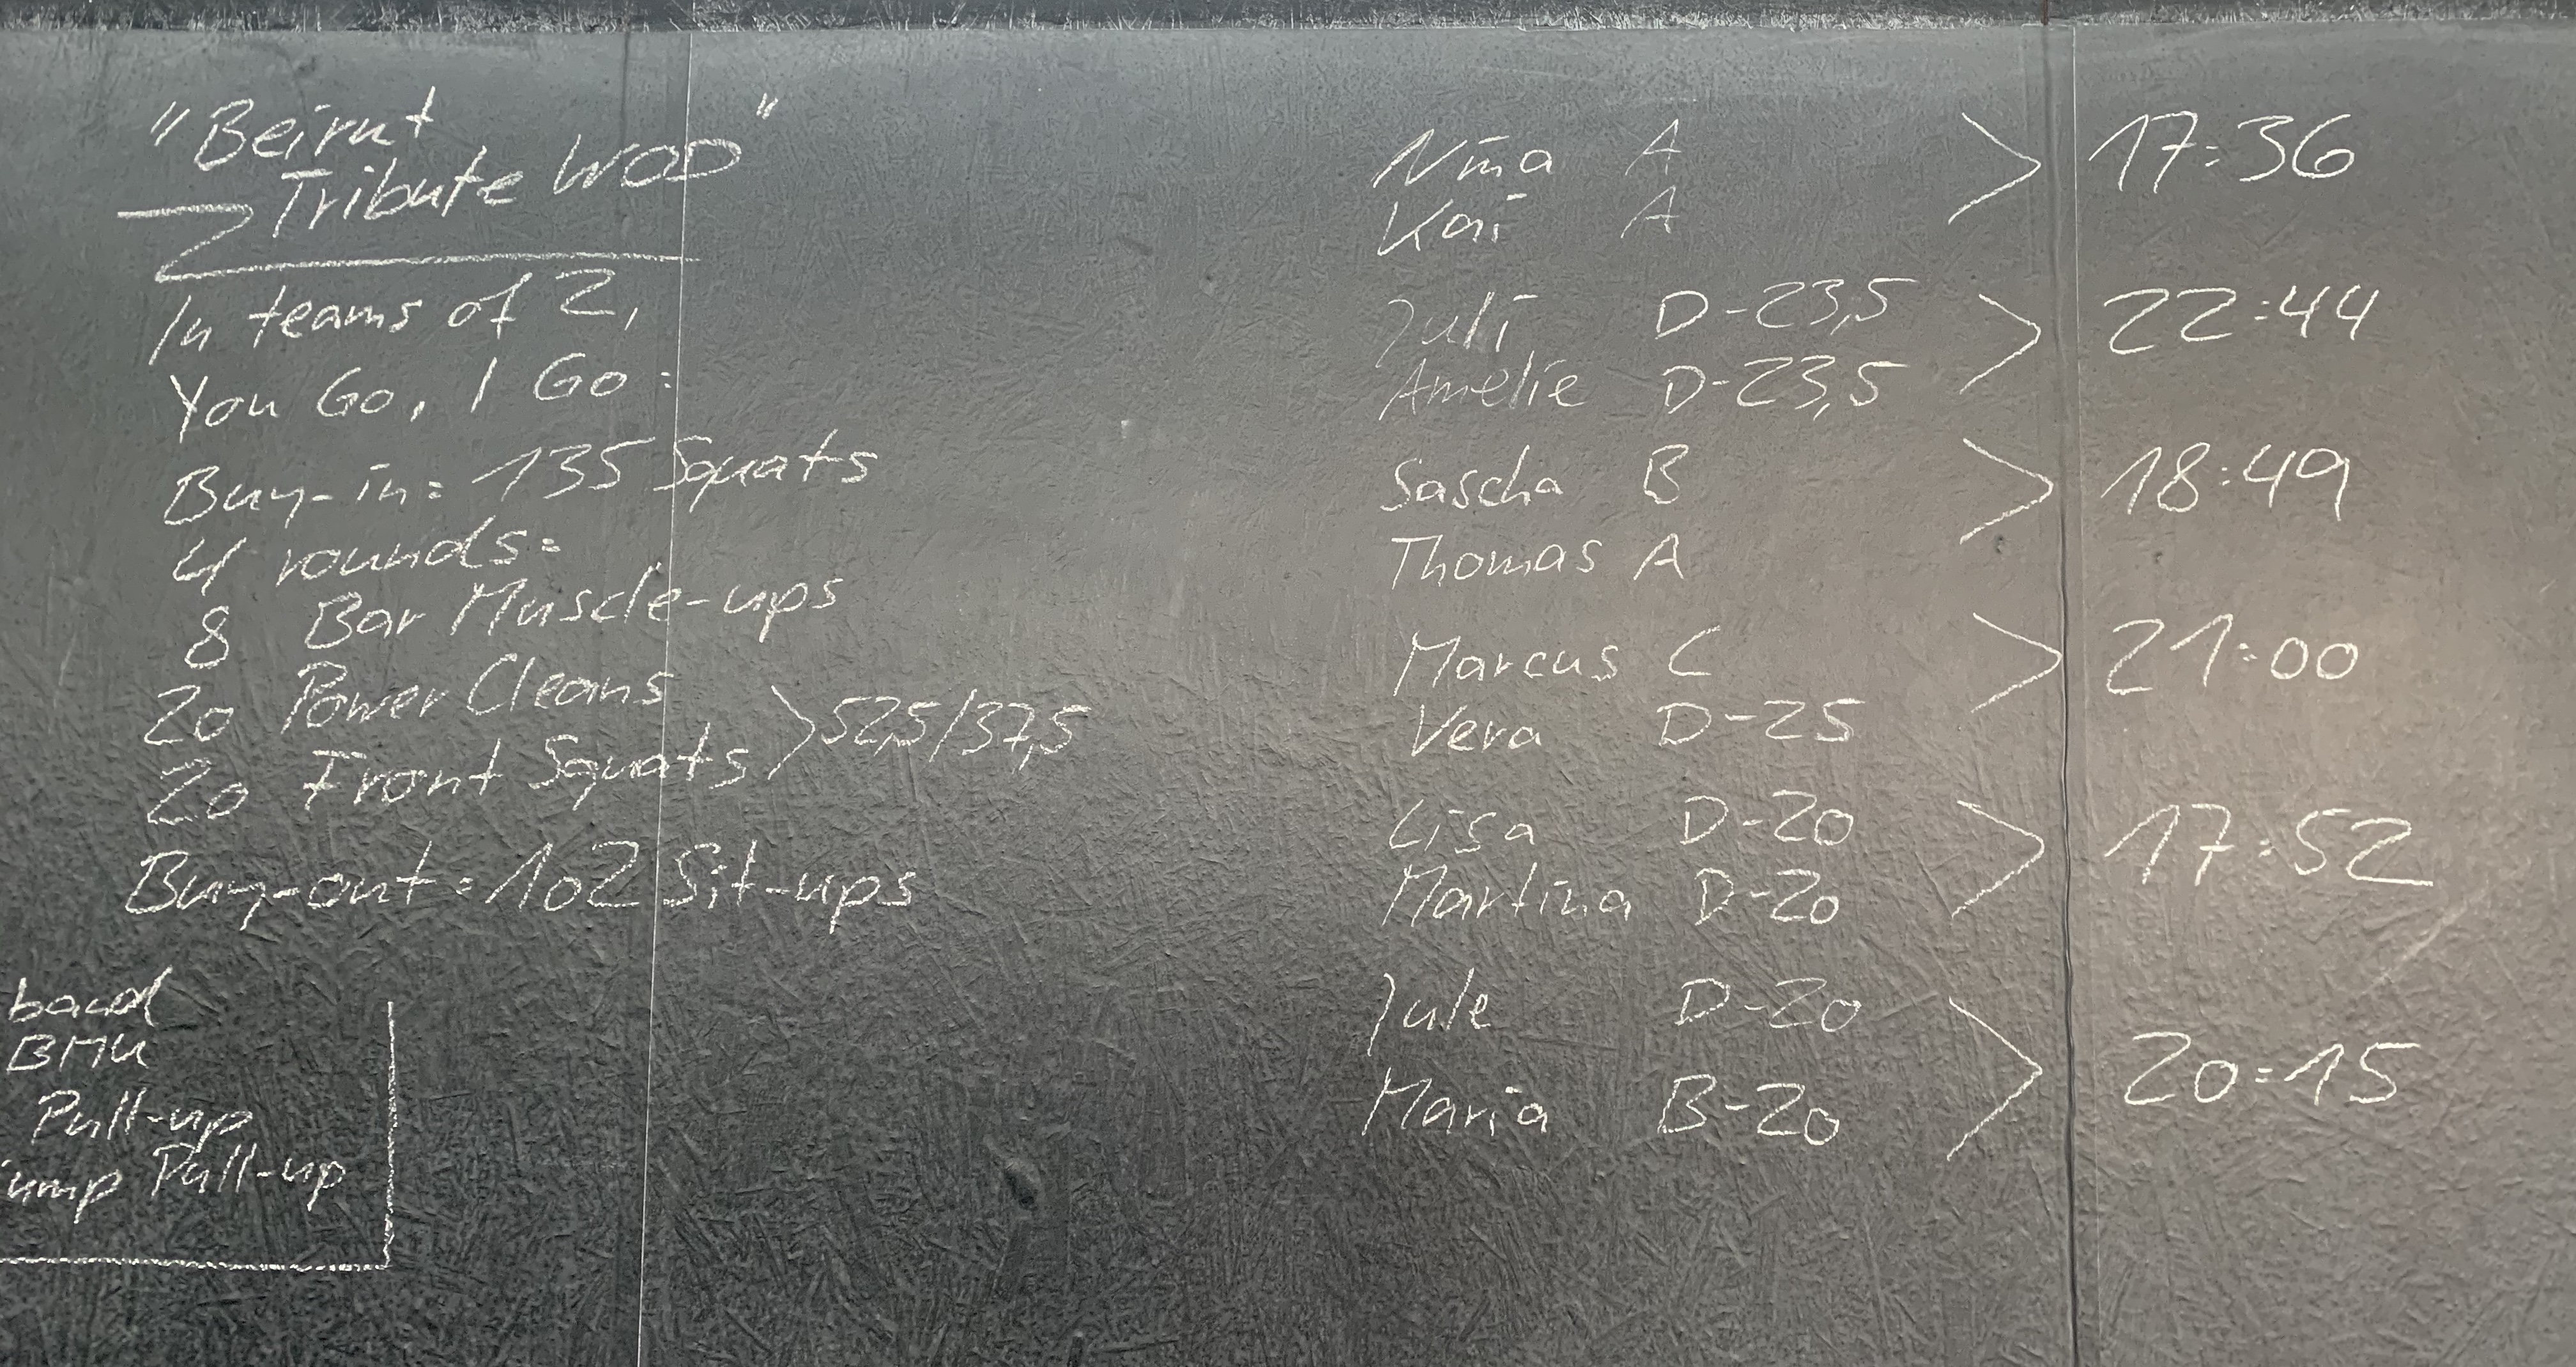 "Beirut
Tribute WOD"
In teams of 2,
You Go, I Go:
Buy-in: 135 Squats
4 rounds:
8 Bar Muscle-ups
20 Power Cleans
20 Front Squats > 52,5/37,5
Buy-out: 102 Sit-ups
band
BMU
Pull-up
ump Pull-up
Nina A
Kai A
> 17:36
Juli D-23,5
Amelie D-23,5
> 22:44
Sascha B
Thomas A
> 18:49
Marcus C
Vera D-25
> 21:00
Lisa D-20
Martina D-20
> 17:52
Jule D-20
Maria B-20
> 20:15